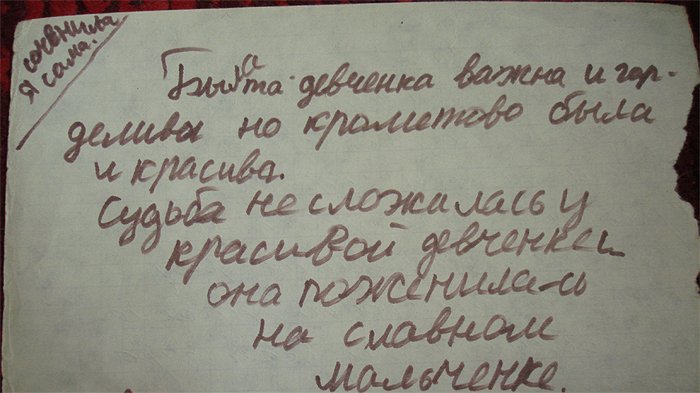 соченила
я сама.
Была та девченка важна и гор-
делива но крометово была
и красива.
Судьба не сложилась у
красивой девченки
она поженилась
на славном
мальченке.